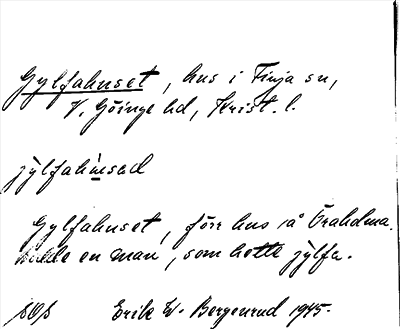 Gylfahuset, hus i Finja sn,
V. Göinge hd, Krist. l.
jỳlfahùsəd
Gylfahuset, förr hus på Öraholma.
bodde en man, som hette jỳlfa.
Erik W. Bergenrud 1945.